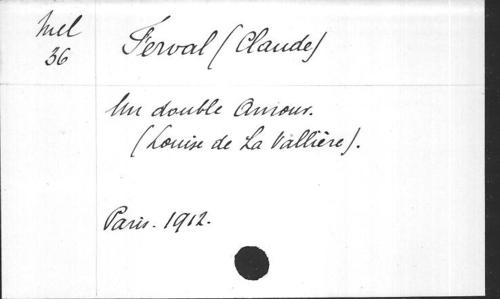 Mel
36
Ferval (Claude)
Un double Amour.
(Louise de La Vallière).
Paris. 1912.